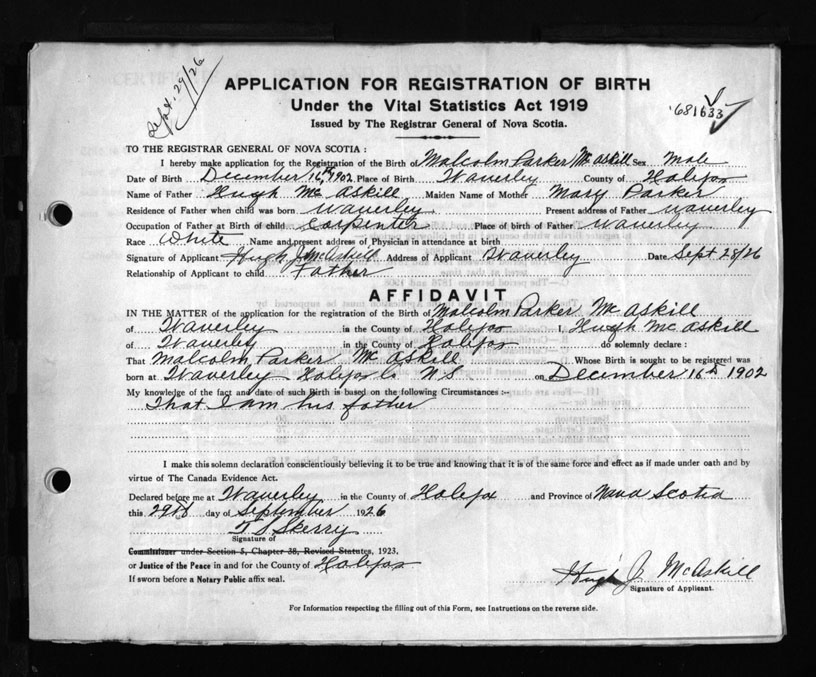 Sept. 29/26
APPLICATION FOR REGISTRATION OF BIRTH
Under the Vital Statistics Act 1919
Issued by The Registrar General of Nova Scotia.
681633
TO THE REGISTRAR GENERAL OF NOVA SCOTIA :
I hereby make application for the Registration of the Birth of Malcolm Parker McAskill Sex Male
Date of Birth December 16th 1902 Place of Birth Waverley County of Halifax
Name of Father Hugh McAskill Maiden Name of Mother Mary Parker
Residence of Father when child was born Waverley Present address of Father Waverley
Occupation of Father at Birth of child Carpenter Place of birth of Father Waverley
Race White Name and present address of Physician in attendance at birth
Signature of Applicant Hugh J McAskill Address of Applicant Waverley Date Sept 28/26
Relationship of Applicant to child Father
AFFIDAVIT
IN THE MATTER of the application for the registration of the Birth of Malcolm Parker McAskill
of Waverley in the County of Halifax I, Hugh McAskill
of Waverley in the County of Halifax do solemnly declare :
That Malcolm Parker McAskill Whose Birth is sought to be registered was
born at Waverley Halifax Co N S on December 16th 1902
My knowledge of the fact and date of such Birth is based on the following Circumstances :-
That I am his father
I make this solemn declaration conscientiously believing it to be true and knowing that it is of the same force and effect as if made under oath and by
virtue of The Canada Evidence Act.
Declared before me at Waverley in the County of Halifax and Province of Nova Scotia
this 29th day of September 1926
T S Skerry
Signature of
Commissioner under Section 5, Chapter 38, Revised Statutes, 1923.
or Justice of the Peace in and for the County of Halifax
If sworn before a Notary Public affix seal.
Hugh J. McAskill
Signature of Applicant.
For Information respecting the filling out of this Form, see Instructions on the reverse side.